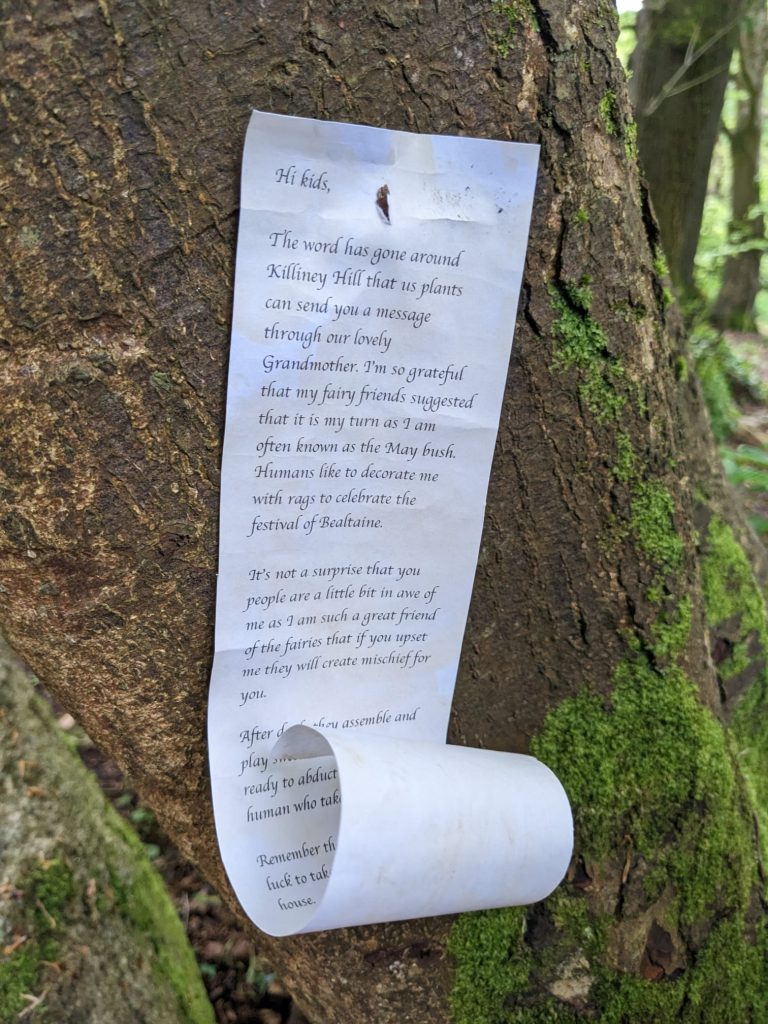 Hi kids,
The word has gone around
Killiney Hill that us plants
can send you a message
through our lovely
Grandmother. I'm so grateful
that my fairy friends suggested
that it is my turn as I am
often known as the May bush.
Humans like to decorate me
with rags to celebrate the
festival of Bealtaine.
It's not a surprise that you
people are a little bit in awe of
me as I am such a great friend
of the fairies that if you upset
me they will create mischief for
you.
After they assemble and
play
ready to abduct
human who
Remember
luck to
house.